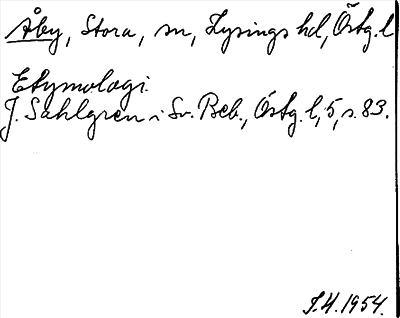 Åby, Stora, sn, Lysings hd, Östg. l
Etymologi.
J. Sahlgren i Sv. Beb., Östg. l, 5, s. 83.
J.H. 1954.